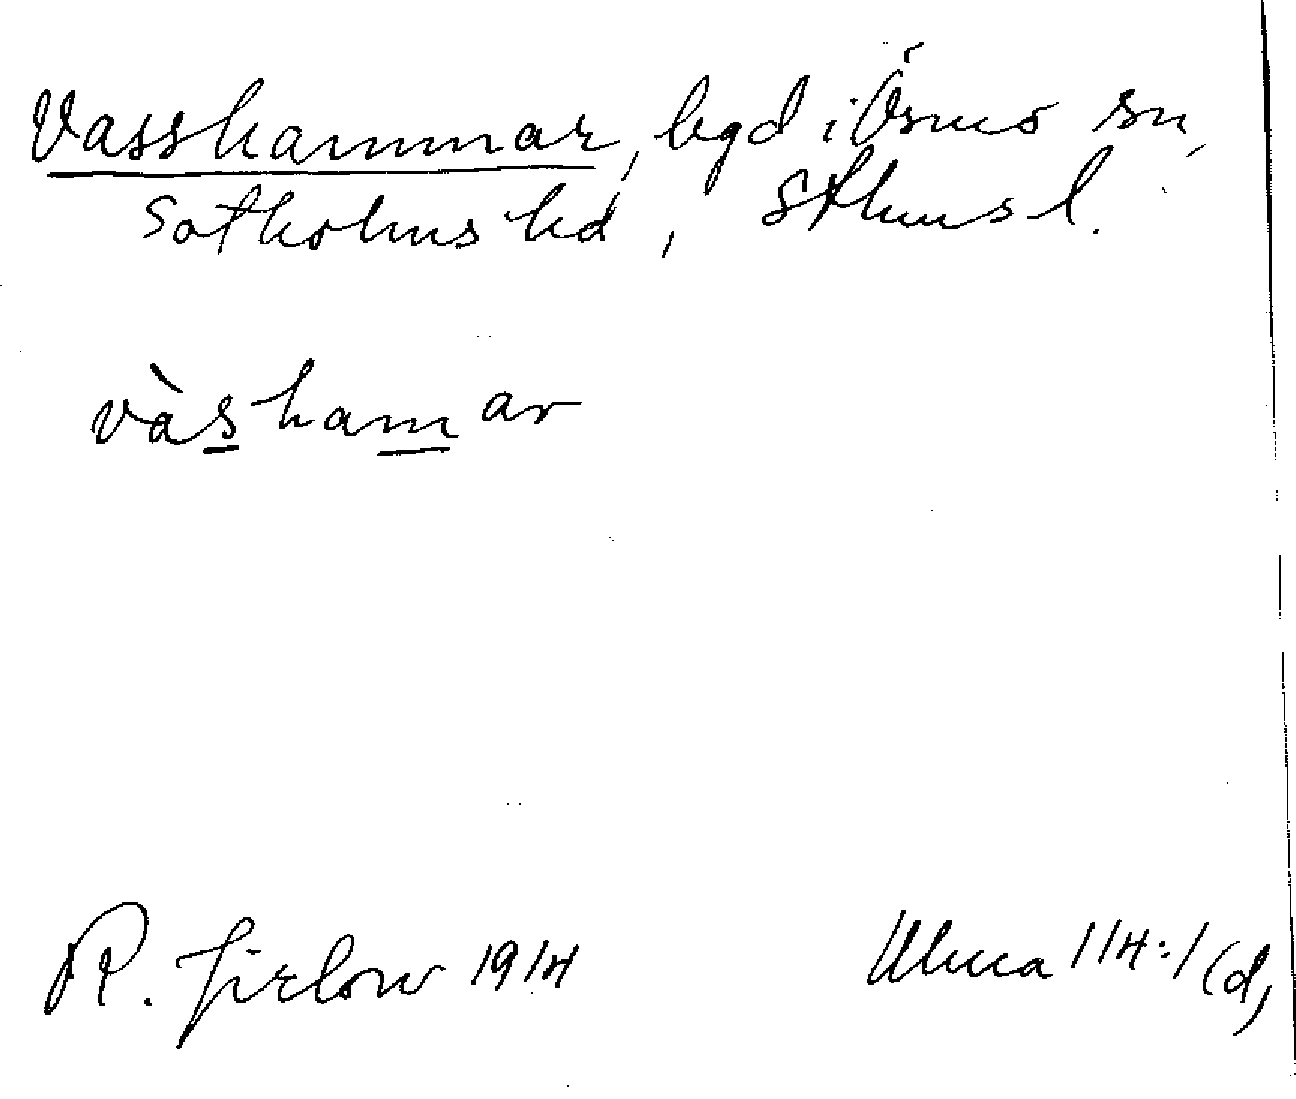 Vasshammar, bgd i Ösmo sn,
Sotholms hd, Sthms l.
vàshamar
R. Jirlow 1914
Ulma 114:1(d)